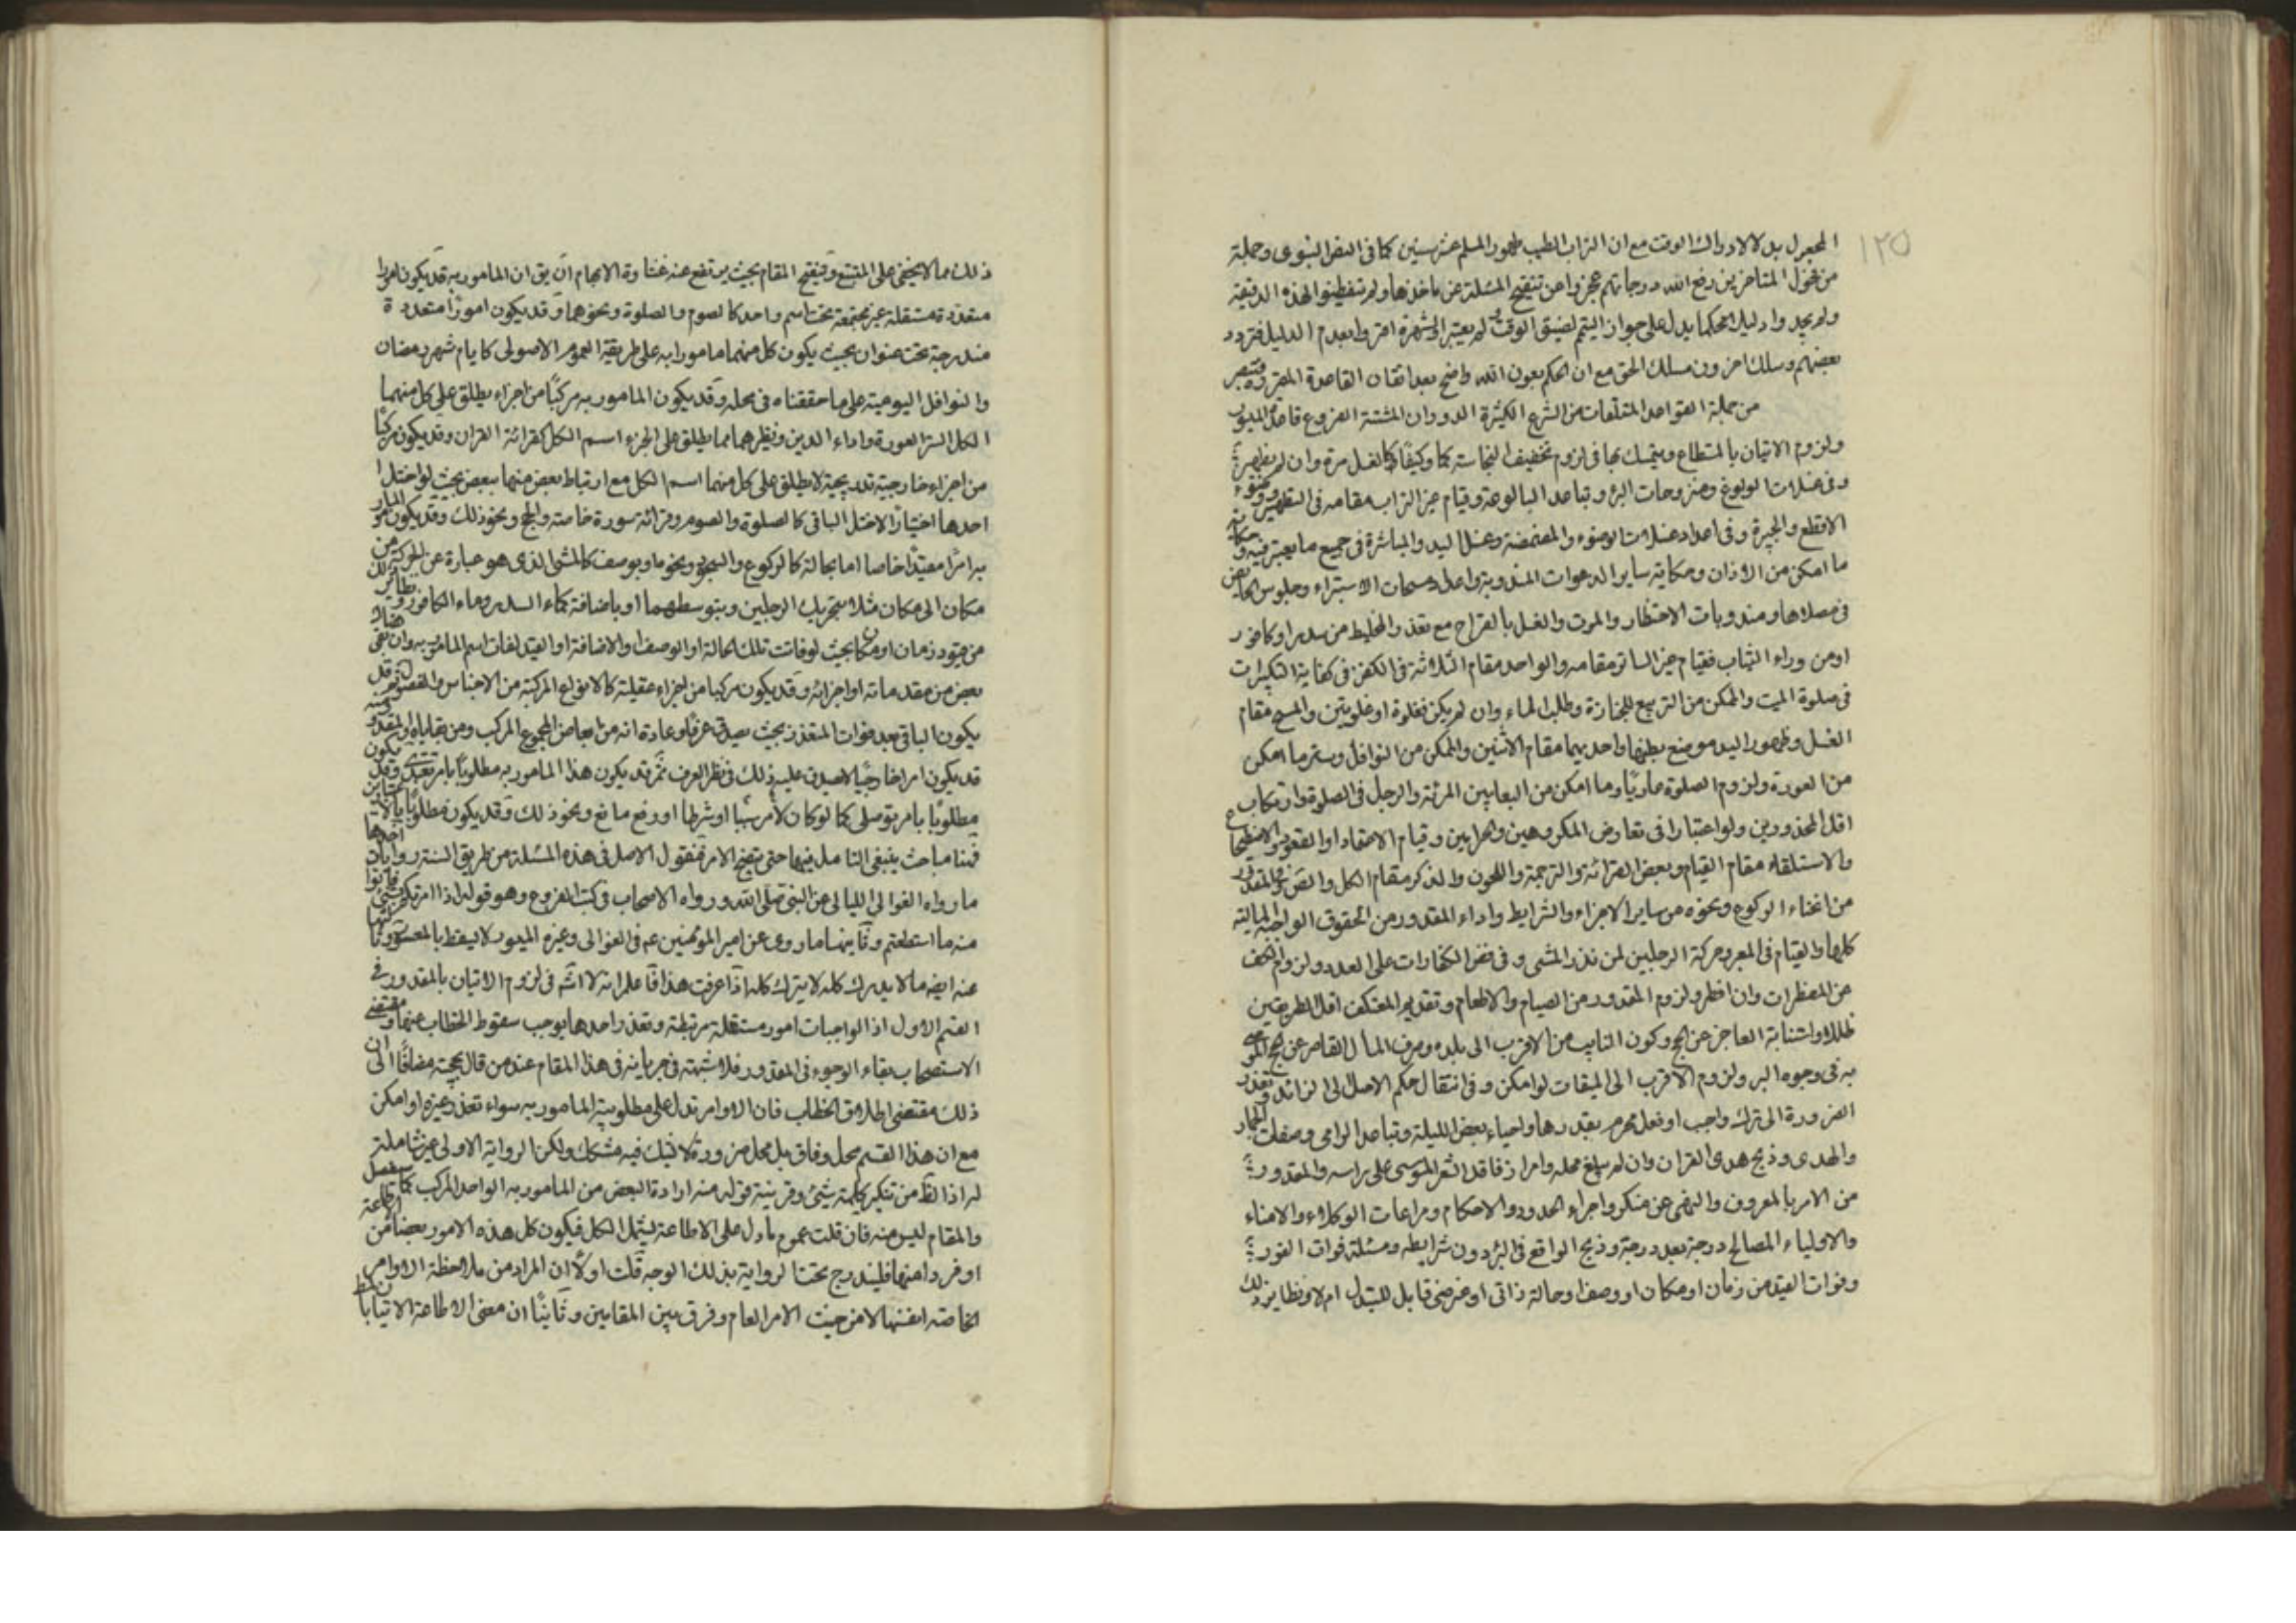 ١٢٥
المجعول بدلا لادراك الوقت مع ان التراب الطيب طهور المسلم عشر سنين كما فى النص النبوى وجملة
من فحول المتاخرين رفع الله درجاتهم عجزوا عن تنقيح المسئلة عن ماخذها ولم تفطنوا لهذه الدقيقة
ولم يجدوا دليلا محكما يدل على جواز التيمم لضيق الوقت لم يعتبر الشهرة افتوا بعدم الدليل فتردد
بعضهم وسلك اخرون مسلك الحق مع ان الحكم بعون الله واضح بعد اتقان القاعدة المقررة
من جملة القواعد المتلقات من الشرع الكثيرة الدوران المشتة الفروع قاعدة الميسور
ولزوم الاتيان بالمستطاع ويتمسك بها فى لزوم تخفيف النجاسة كما وكيفا كالغسل مرة وان لم
وفى غسلات الولوغ ومنزوحات البئر وتباعد البالوعة وقيام غير التراب مقامه فى التطهير
الاقطع والجبيرة وفى اعداد غسلات الوضوء والمضمضة وغسل اليد والمباشرة فى جميع ما يعتبر فيه
ما امكن من الاذان وحكاية ساير الدعوات المندوبة واعداد مسحات الاستبراء وجلوس الحائض
فى مصلاها ومندوبات الاحتظار والموت والغسل بالقراح مع تعذر الخليط من سدر او كافور
او من وراء الثياب فقيام غير الساتر مقامه والواحد مقام الثلاثة فى الكفن فى كفاية التكبيرات
فى صلوة الميت والممكن من التربيع للجنازة وطلب الماء وان لم يكن فغلوة او غلوتين والمسح مقام
الغسل وظهور اليد موضع بطنها واحديهما مقام الاثنين والممكن من النوافل وستر ما امكن
من العورة ولزوم الصلوة عاريا وما امكن من البعد بين المرئة والرجل فى الصلوة وارتكاب
اقل المحذورين ولو اعتبارا فى تعارض المكروهين والحرامين وقيام الاعتماد او القعود والاضطجاع
والاستلقاء مقام القيام وبعض القرائة والترجمة واللحون والذكر مقام الكل والمقدور
من انحناء الركوع ونحوه من ساير الاجزاء والشرايط واداء المقدور من الحقوق الواجبة المالية
كلها والقيام فى المعبر وحركة الرجلين لمن نذر المشى وفى نقص الكفارات على العدد ولزوم الكف
عن المفطرات وان افطر ولزوم المقدور من الصيام والاطعام وتقديم المعتكف اقل الطريقين
ظلالا واستنابة العاجز عن الحج وكون النايب من الاقرب الى بلده وصرف المال القاصر عن الحج الموصى
به فى وجوه البر ولزوم الاقرب الى الميقات لو امكن وفى انتقال حكم الاصل الى الزائد
الضرورة الى ترك واجب او فعل محرم بقدرها واحياء بعض الليلة وتباعد الرامى وصفات الجمار
والهدى وذبح هدى القران وان لم يبلغ محله وامرار فاقد الشعر الموسى على راسه والمقدور
من الامر بالمعروف والنهى عن منكر واجراء الحدود والاحكام ومراعات الوكلاء والامناء
والاولياء المصالح درجة بعد درجة وذبح الواقع فى البئر دون شرايطه ومسئلة فوات الفور
وفوات القيد من زمان او مكان او وصف او حالة ذاتى او عرضى قابل للتبدل ام لا ونظاير ذلك
ذلك مما لايخفى على المتتبع وتنقيح المقام بحيث يرتفع عنه غشاوة الابهام ان يق ان المامور به قد يكون امورا
متعددة مستقلة غير مجتمعة تحت اسم واحد كالصوم والصلوة ونحوهما وقد يكون امورا متعددة
مندرجة تحت عنوان بحيث يكون كل منهما مامورا به على طريقة العموم الاصولى كايام شهر رمضان
والنوافل اليومية على ما حققناه فى محله وقد يكون المامور به مركبا من اجزاء يطلق على كل منهما
الكل الستر العورة واداء الدين ونظيرهما مما يطلق على الجزء اسم الكل كقرائة القران وقد يكون مركبا
من اجزاء خارجية تدريجية لا يطلق على كل منهما اسم الكل مع ارتباط بعض منهما ببعض بحيث لو اختل
احدها اختيارا لاختل الباقى كالصلوة والصوم وقرائة سورة خاصة والحج ونحو ذلك وقد يكون المامور
به امرا مقيدا خاصا اما بحالة كالركوع والسجود ونحوها وبوصف كالمشى الذى هو عبارة عن الحركة من
مكان الى مكان مثلا بتحريك الرجلين وبتوسطهما او باضافة كماء السدر وماء الكافور ونظائر ذلك
من قيود زمان او مكان بحيث لو فاتت تلك الحالة او الوصف او الاضافة او القيد لفات اسم المامور به وان بقى
بعض من مقدماته او اجزائه وقد يكون مركبا من اجزاء عقلية كالانواع المركبة من الاجناس والفصول
يكون الباقى بعد فوات المتعذر بحيث يصدق عرفا وعادة انه من ابعاض المجموع المركب ومن بقاياه
قد يكون امرا خارجيا لا يصدق عليه ذلك فى نظر العرف ثم قد يكون هذا المامور به مطلوبا بامر تعبدى وقد يكون
مطلوبا بامر توصلى كما لو كان لامر سببا او شرطا او رفع مانع ونحو ذلك وقد يكون مطلوبا
فهنا مباحث ينبغى التامل فيها حتى يتضح الامر فنقول الاصل فى هذه المسئلة من طريق السنة روايات احدها
ما رواه الغوالى الليالى عن النبى صلى الله ورواه الاصحاب فى كتب الفروع وهو قوله اذا امرتكم بشئ فاتوا
منه ما استطعتم وثانيها ما روى عن امير المؤمنين عم فى الغوالى وغيره الميسور لا يسقط بالمعسور وثالثها
عنه ايضه ما لا يدرك كله لا يترك كله اذا عرفت هذا فاعلم انه لا اشه فى لزوم الاتيان بالمقدور فى
القسم الاول اذ الواجبات امور مستقلة مرتبطة وتعذر احدها يوجب سقوط الخطاب عنها ومقتضى
الاستصحاب بقاء الوجوب فى المقدور فلا شبهة فى جريانه فى هذا المقام عند من قال بحجيته مضافا الى ان
ذلك مقتضى اطلاق الخطاب فان الاوامر تدل على مطلوبية المامور به سواء تعذر غيره او امكن
مع ان هذا القسم محل وفاق بل محل ضرورة لا شك فيه مشكك ولكن الرواية الاولى غير شاملة
له اذ الظ من تنكير كلمة شئ وقرينة قوله منه ارادة البعض من المامور به الواحد المركب كما
والمقام ليس منه فان قلت عموم ما دل على الاطاعة يشمل الكل فيكون كل هذه الامور بعضا من
او فردا منها فليندرج تحت الرواية بذلك الوجه قلت اولا ان المراد من ملاحظة الاوامر
الخاصة انفسها لا من حيث الامر العام وفرق بين المقامين وثانيا ان معنى الاطاعة الاتيان